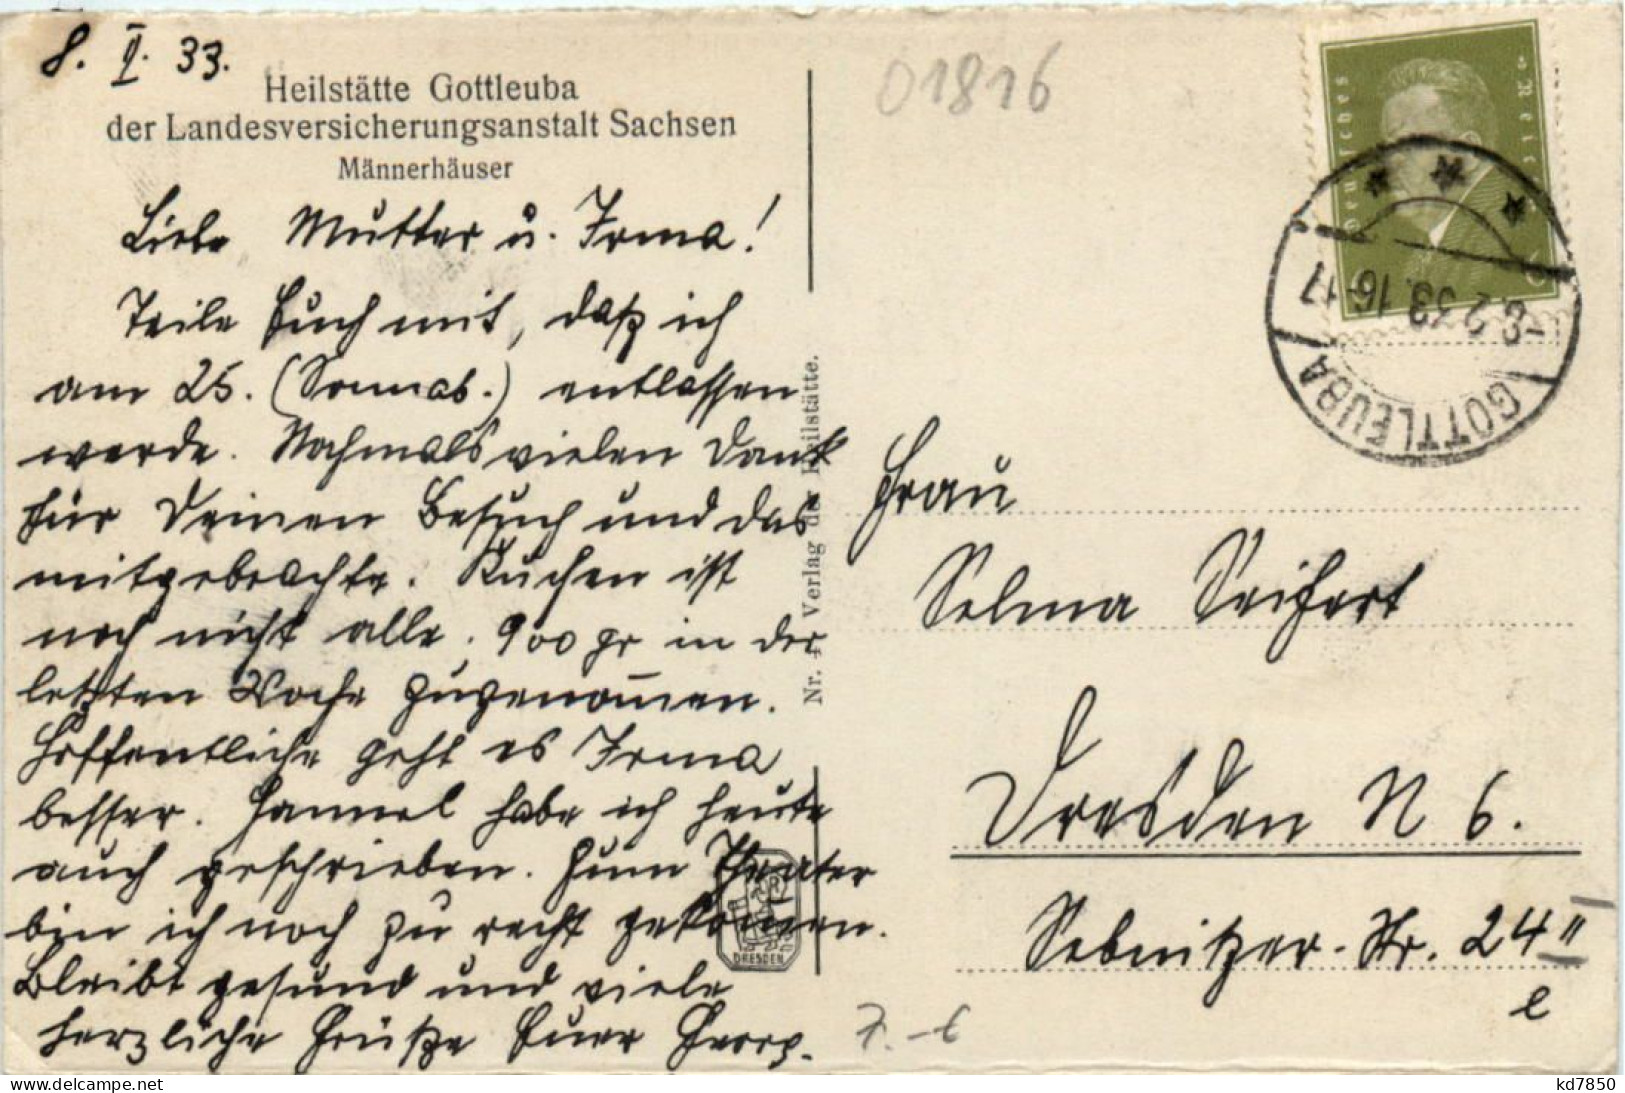 8. II. 33.
Heilstätte Gottleuba
der Landesversicherungsanstalt Sachsen
Männerhäuser
Liebe Mutter u. Irma!
Teile Euch mit, daß ich
am 25. (Sonnab.) entlassen
werde. Nochmals vielen Dank
für Deinen Besuch und das
mitgebrachte. Kuchen ist
noch nicht alle. 900 gr in der
letzten Woche zugenom̅en.
Hoffentlich geht es Irma
besser. Hammel habe ich heute
auch geschrieben. Zum Theater
bin ich noch zu recht gekom̅en.
Bleibt gesund und viele
herzliche Grüße Euer Georg.
Nr. 4 Verlag der Heilstätte.
DRESDEN
01816
Deutsches Reich
6
GOTTLEUBA
-8.2.33.16-17
Frau
Selma Seifert
Dresden N 6.
Sebnitzer-Str. 24 II
l
7.-6
kd7850